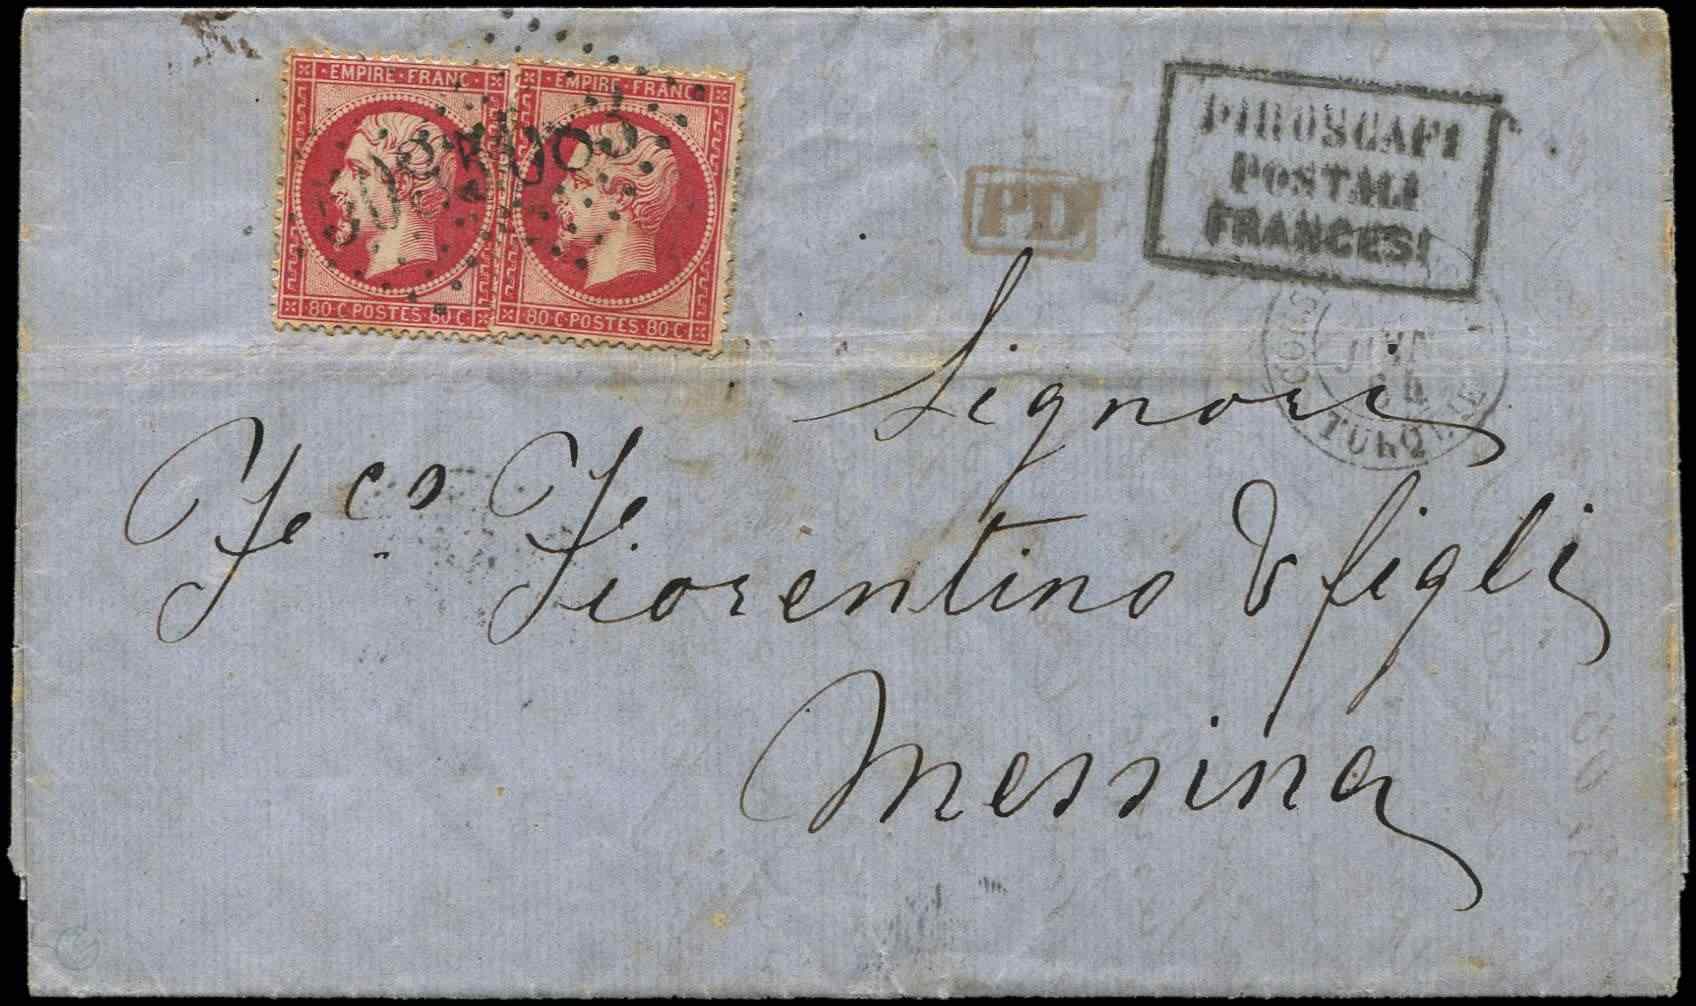 EMPIRE · FRANC · EMPIRE · FRANC
5083 5083
80 · C · POSTES · 80 · C 80 · C · POSTES · 80 · C
PD
PIROSCAFI
POSTALI
FRANCESI
JUIN
TURQUIE
Signori
Fco Fiorentino & figli
Messina